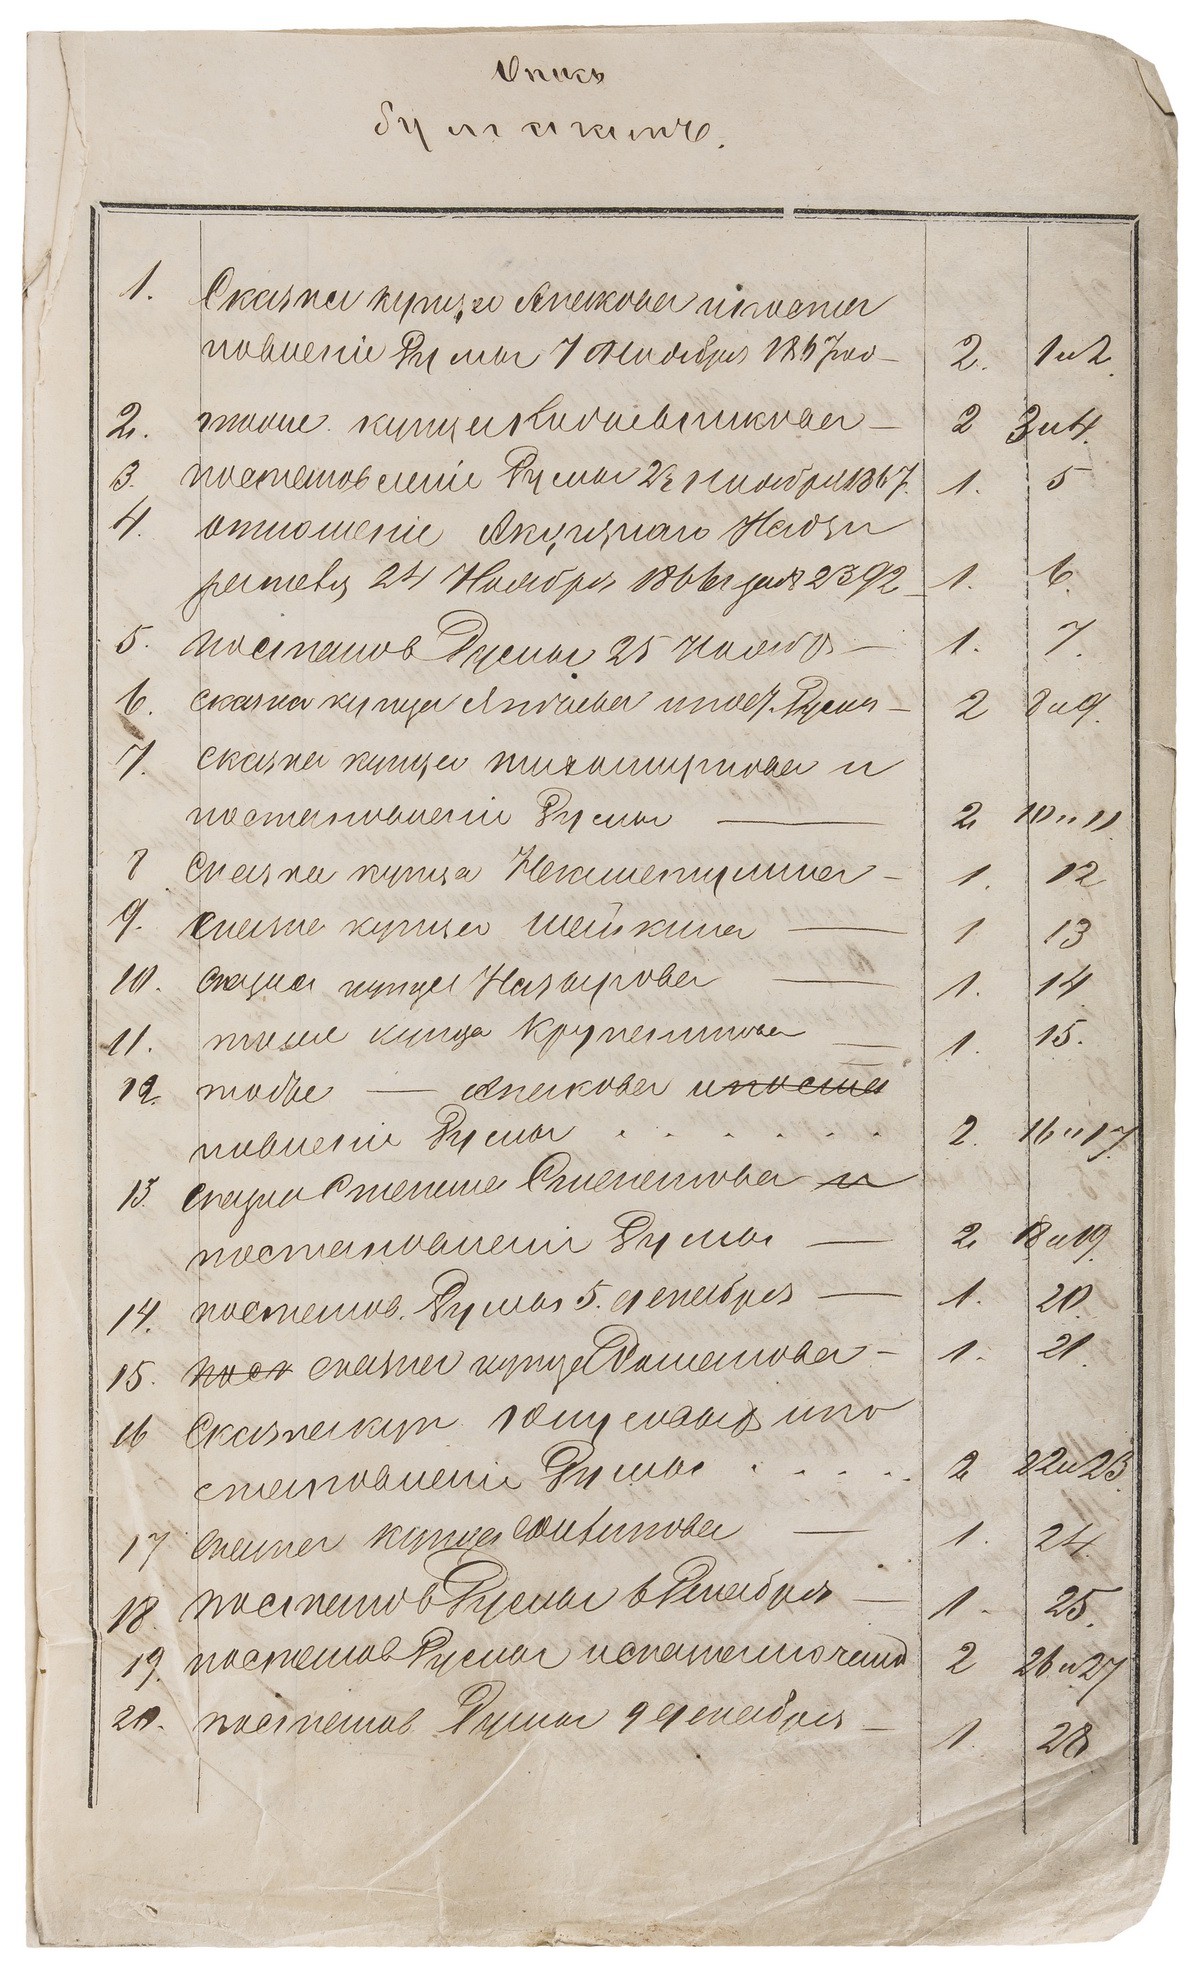 Опись
бумагамъ.
1. Сказка купца Апакова и поста
новленіе Думы 7 Ноября 1867 го 2. 1 и 2.
2. тоже купца 2 3 и 4.
3. постановленіе Думы 22 Ноября 1867. 1. 5
4. отношеніе Акцизнаго Надзи
рателя 24 Ноября 2392 1. 6.
5. постанов Думы 25 Ноябр 1. 7.
6. сказка купца и пост. Думы 2 8 и 9.
7. сказка купца Тихомирнова и
постановленіе Думы 2 10 и 11
8 Сказка купца 1. 12
9. сказка купца Шейкина 1 13
10. сказка купца Назырова 1. 14
11. тоже купца Крупенникова 1. 15.
12. тоже Апакова и поста
новленіе Думы 2. 16 и 17
13. сказка Степана Степанова и
постановленіе Думы 2 18 и 19.
14. постанов. Думы 5. декабря 1. 20.
15. пост сказка купца 1. 21.
16 Сказка куп. Юнусовыхъ и по
становленіе Думы 2 22 и 23
17 сказка купца 1. 24.
18. постанов Думы 6 Декабря 1. 25.
19. постанов Думы 2 26 и 27
20. постанов Думы 9 декабря 1. 28